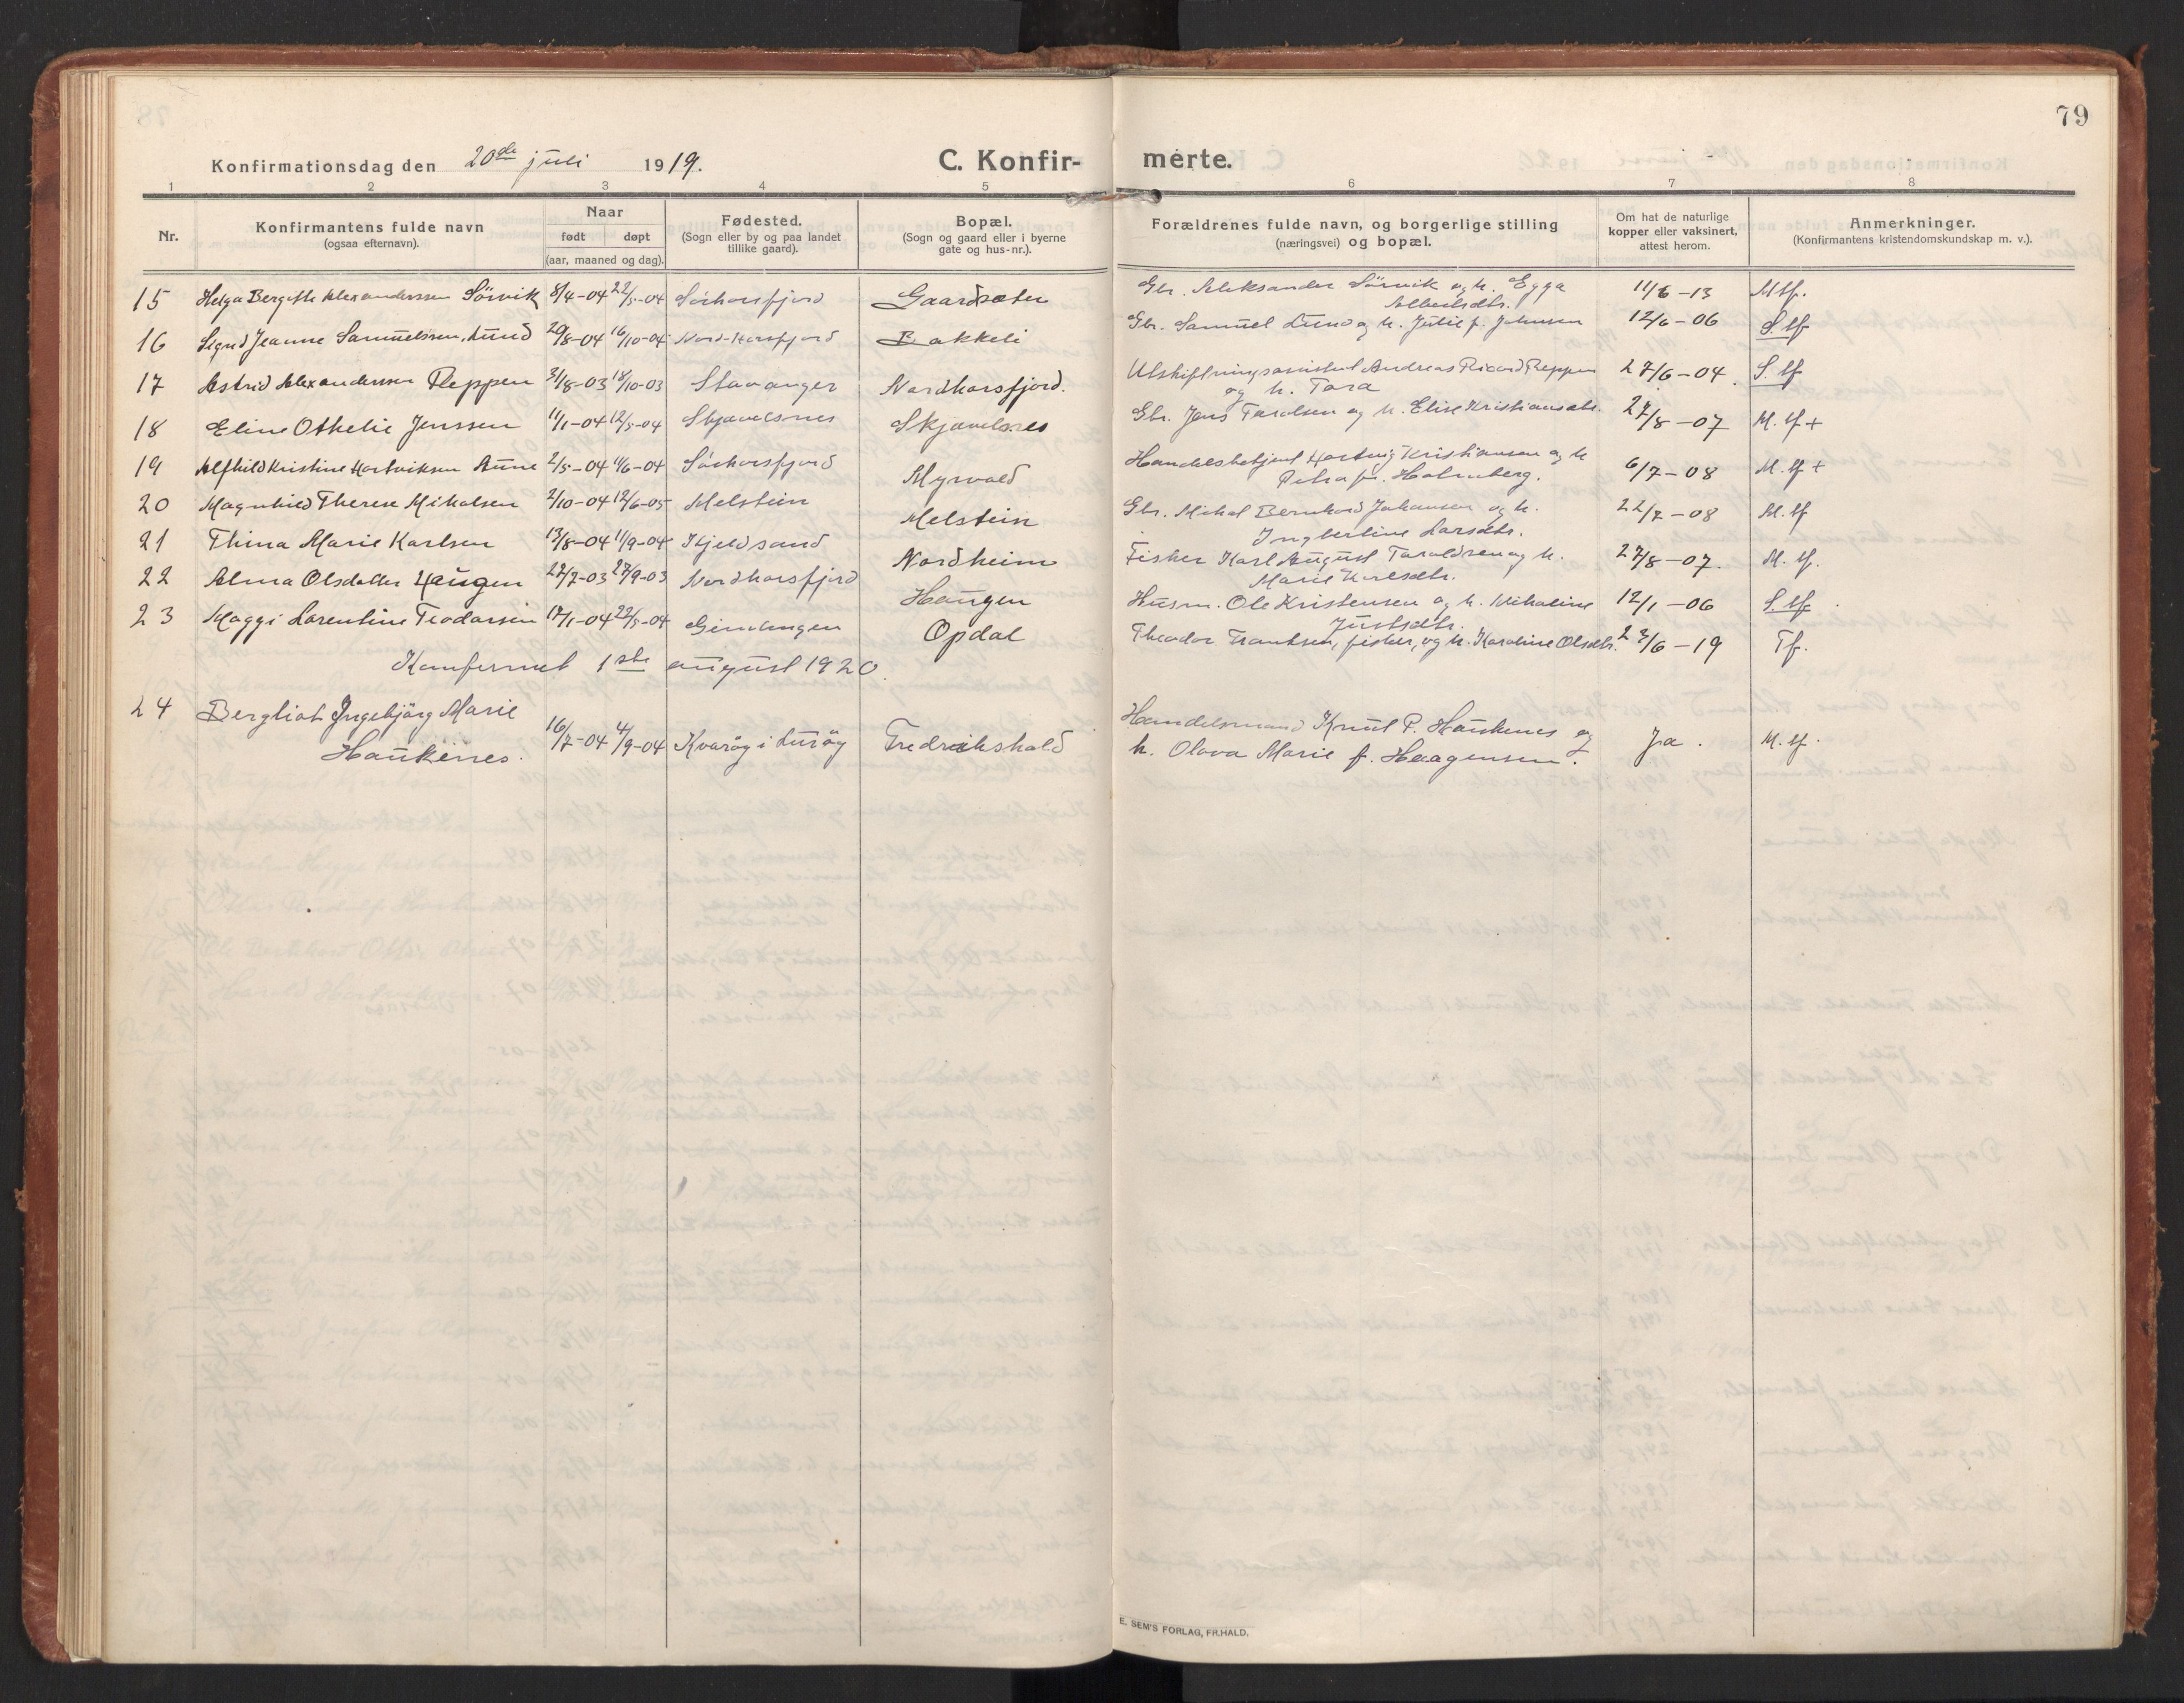 79
Konfirmationsdag den 20de juli 1919.
C. Konfir-
merte.
1 2 3 4 5 6 7 8
Nr.
Konfirmantens fulde navn
(ogsaa efternavn).
Naar
født døpt
(aar, maaned og dag).
Fødested.
(Sogn eller by og paa landet
tillike gaard).
Bopæl.
(Sogn og gaard eller i byerne
gate og hus-nr.).
Forældrenes fulde navn, og borgerlige stilling
(næringsvei) og bopæl.
Om hat de naturlige
kopper eller vaksinert,
attest herom.
Anmerkninger.
(Konfirmantens kristendomskundskap m. v.).
15 Helga Bergitte Alexanderssen Sörvik 8/4-04 22/5-04 Sörhorsfjord Gaardsæter Gbr. Aleksander Sörvik og h. Egga 11/6-13 Mtf.
Albertsdtr.
16 Signd Jeanne Samuelssen Lund 20/8-04 16/10-04 Nord-Horsfjord Bakkeli Gbr. Samuel Lund og h. Julie f. Johnsen 12/6-06 S. tf
17 Astrid Alexandersen Reppen 31/8-03 18/10-03 Stavanger Nordhorsfjord. Utskiftningsassistent Andreas Ricard Reppen 27/6-04. S. tf
og h. Tora
18 Eline Othelie Jenssen 11/1-04 12/5-04 Skjævelsnes Skjævelsnes Gbr. Jens Tarolsen og h. Elise Kristiansdtr. 27/8-07 M. tf +
19 Alfhild Kristine Hartviksen Aune 2/5-04 11/6-04 Sörhorsfjord Myrvold Handelsbetjent Hartvig Kristiansen og h 6/7-08 M. tf +
Petra f. Holmberg.
20 Magnhild Therese Mikalsen 2/10-04 12/6-05 Melstein Melstein Gbr. Mikal Bernhard Johansen og h. 22/7-08 M. tf
Ingbertine Larsdtr.
21 Thina Marie Karlsen 13/8-04 11/9-04 Kjeldsand Nordheim Fisker Karl August Taraldsen og h. 27/8-07. M. tf.
Marie Karlsdtr.
22 Alma Olsdatter Haugen 22/7-03 27/9-03 Nordhorsfjord Haugen Husm. Ole Kristensen og h. Nikoline 12/1-06 S. tf.
Justsdtr.
23 Maggi Lorentine Teodorsen 17/1-04 22/5-04 Opdal Theodor Frantsen, fisker, og h. Karoline Olsdtr. 23/6-19 Tf.
Konfermert 1ste august 1920.
24 Bergliot Ingebjörg Marie
Haukenes. 16/7-04 4/9-04 Kvaröy i Luröy Fredrikshald Handelsmand Knut P. Haukenes og
h. Olava Marie f. Haagensen. Ja. M. tf.
E. SEM'S FORLAG, FR.HALD.